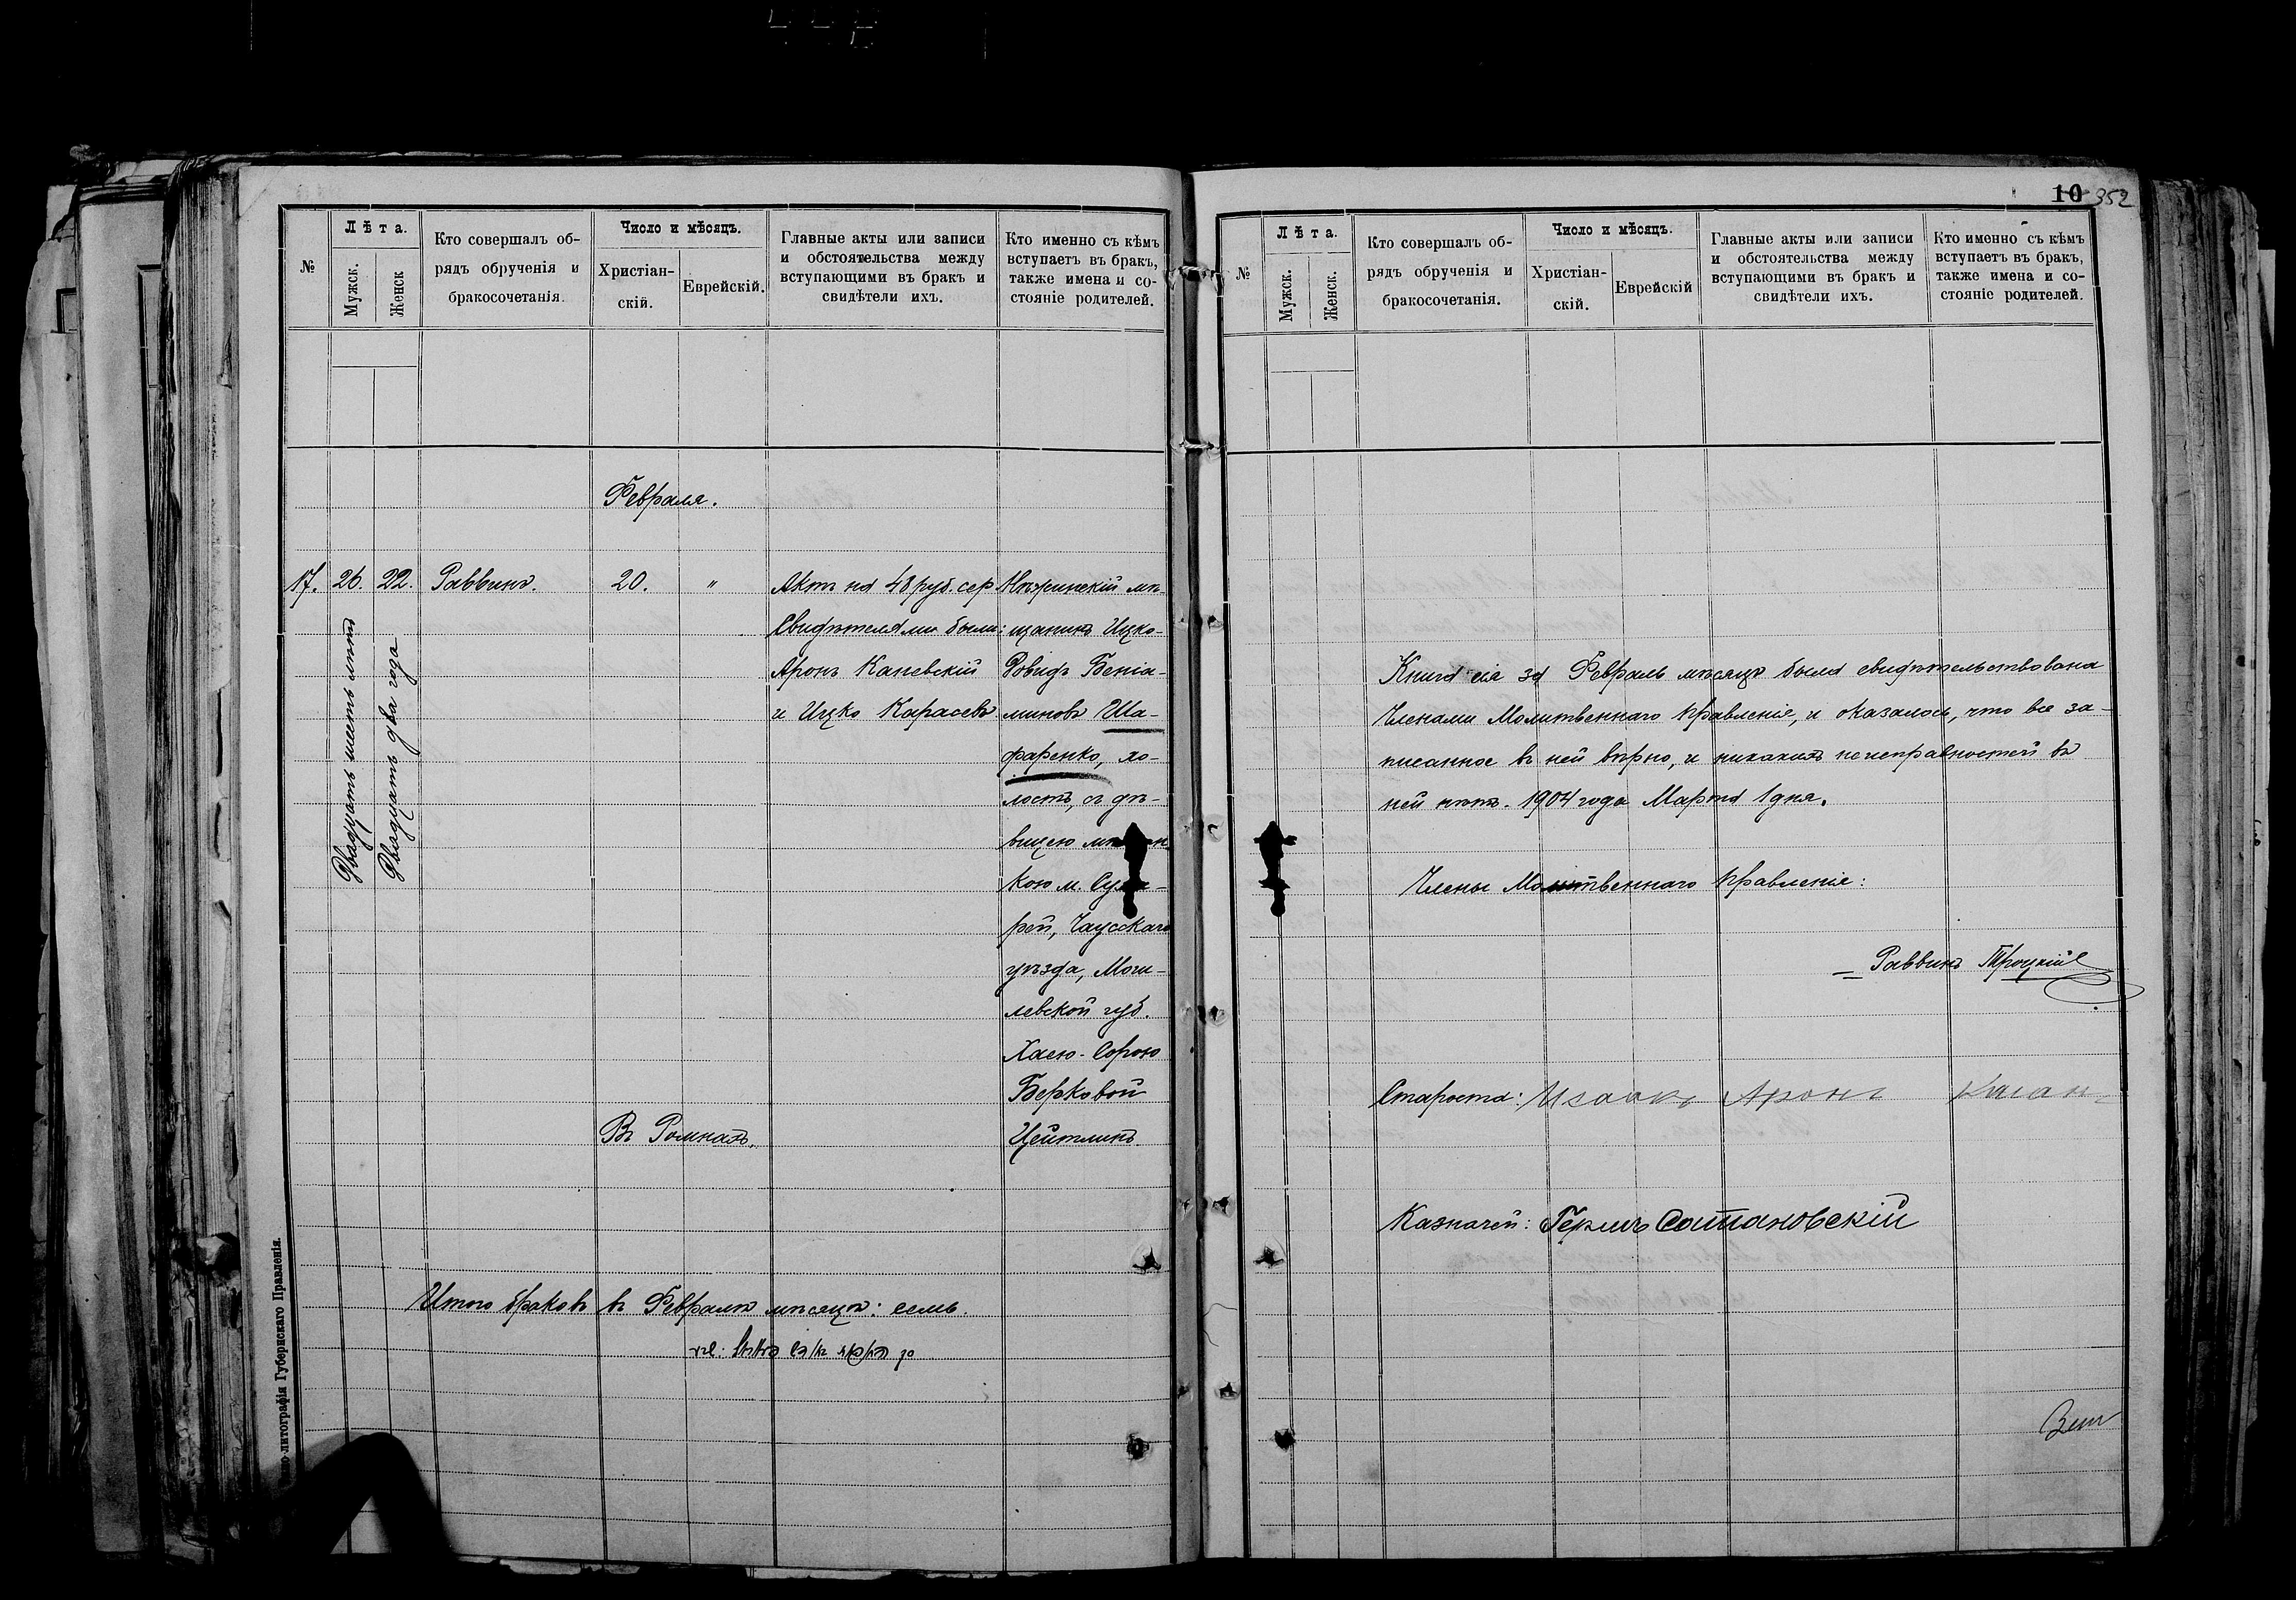 №
Лѣта.
Мужск.
Женск
Кто совершалъ об-
рядъ обрученія и
бракосочетанія.
Число и мѣсяцъ.
Христіан-
скій.
Еврейскій.
Главные акты или записи
и обстоятельства между
вступающими въ бракъ и
свидѣтели ихъ.
Кто именно съ кѣмъ
вступаетъ въ бракъ,
также имена и со-
стояніе родителей.
Февраля.
17.
26.
Двадцать шесть лѣтъ
22.
Двадцать два года
Раввинъ.
20.
"
Въ Ромнахъ.
Актъ на 48 руб. сер
Свидѣтелями были:
Аронъ Каневскій
и Ицко Карасевъ.
Нѣжинскій мѣ-
щанинъ Ицко-
Ровидъ Беніа-
миновъ Ша-
фаренко, хо-
лостъ, съ дѣ-
вицею
кою м.
рей, Чаусскаго
уѣзда, Моги-
левской губ.
Хаею-Сорою
Берковой
Цейтлинъ.
Итого браковъ въ Февралѣ мѣсяцѣ: семь.
Типо-литографія Губернскаго Правленія.
10 352
№
Лѣта.
Мужск.
Женск.
Кто совершалъ об-
рядъ обрученія и
бракосочетанія.
Число и мѣсяцъ.
Христіан-
скій.
Еврейскій
Главные акты или записи
и обстоятельства между
вступающими въ бракъ и
свидѣтели ихъ.
Кто именно съ кѣмъ
вступаетъ въ бракъ,
также имена и со-
стояніе родителей.
Книга сія за Февраль мѣсяцъ была свидѣтельствована
Членами Молитвеннаго Правленія, и оказалось, что все за-
писанное въ ней вѣрно, и никакихъ неисправностей въ
ней нѣтъ. 1904 года Марта 1 дня.
Члены Молитвеннаго Правленія:
Раввинъ Троцкій
Староста: Исаакъ Аронъ Каганъ
Казначей: Гершъ Сатановскій